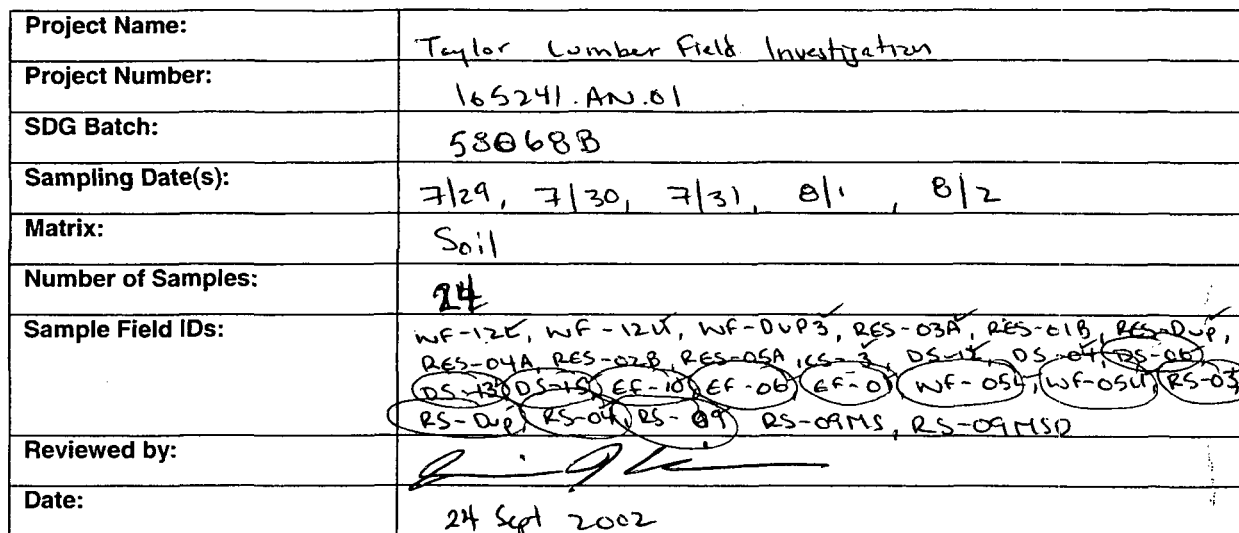 Project Name:
Taylor Lumber Field Investigation
Project Number:
165241.AN.01
SDG Batch:
58068B
Sampling Date(s):
7/29, 7/30, 7/31, 8/1, 8/2
Matrix:
Soil
Number of Samples:
24
Sample Field IDs:
WF-12L, WF-12U, WF-DUP3, RES-03A, RES-01B, RES-Dup,
RES-04A, RES-02B, RES-05A, DS-04, DS-06,
DS-13, DS-15, EF-10, EF-06, WF-05L, WF-05U, RS-03,
RS-Dup, RS-04, RS-09, RS-09MS, RS-09MSD
Reviewed by:
Date:
24 Sept 2002